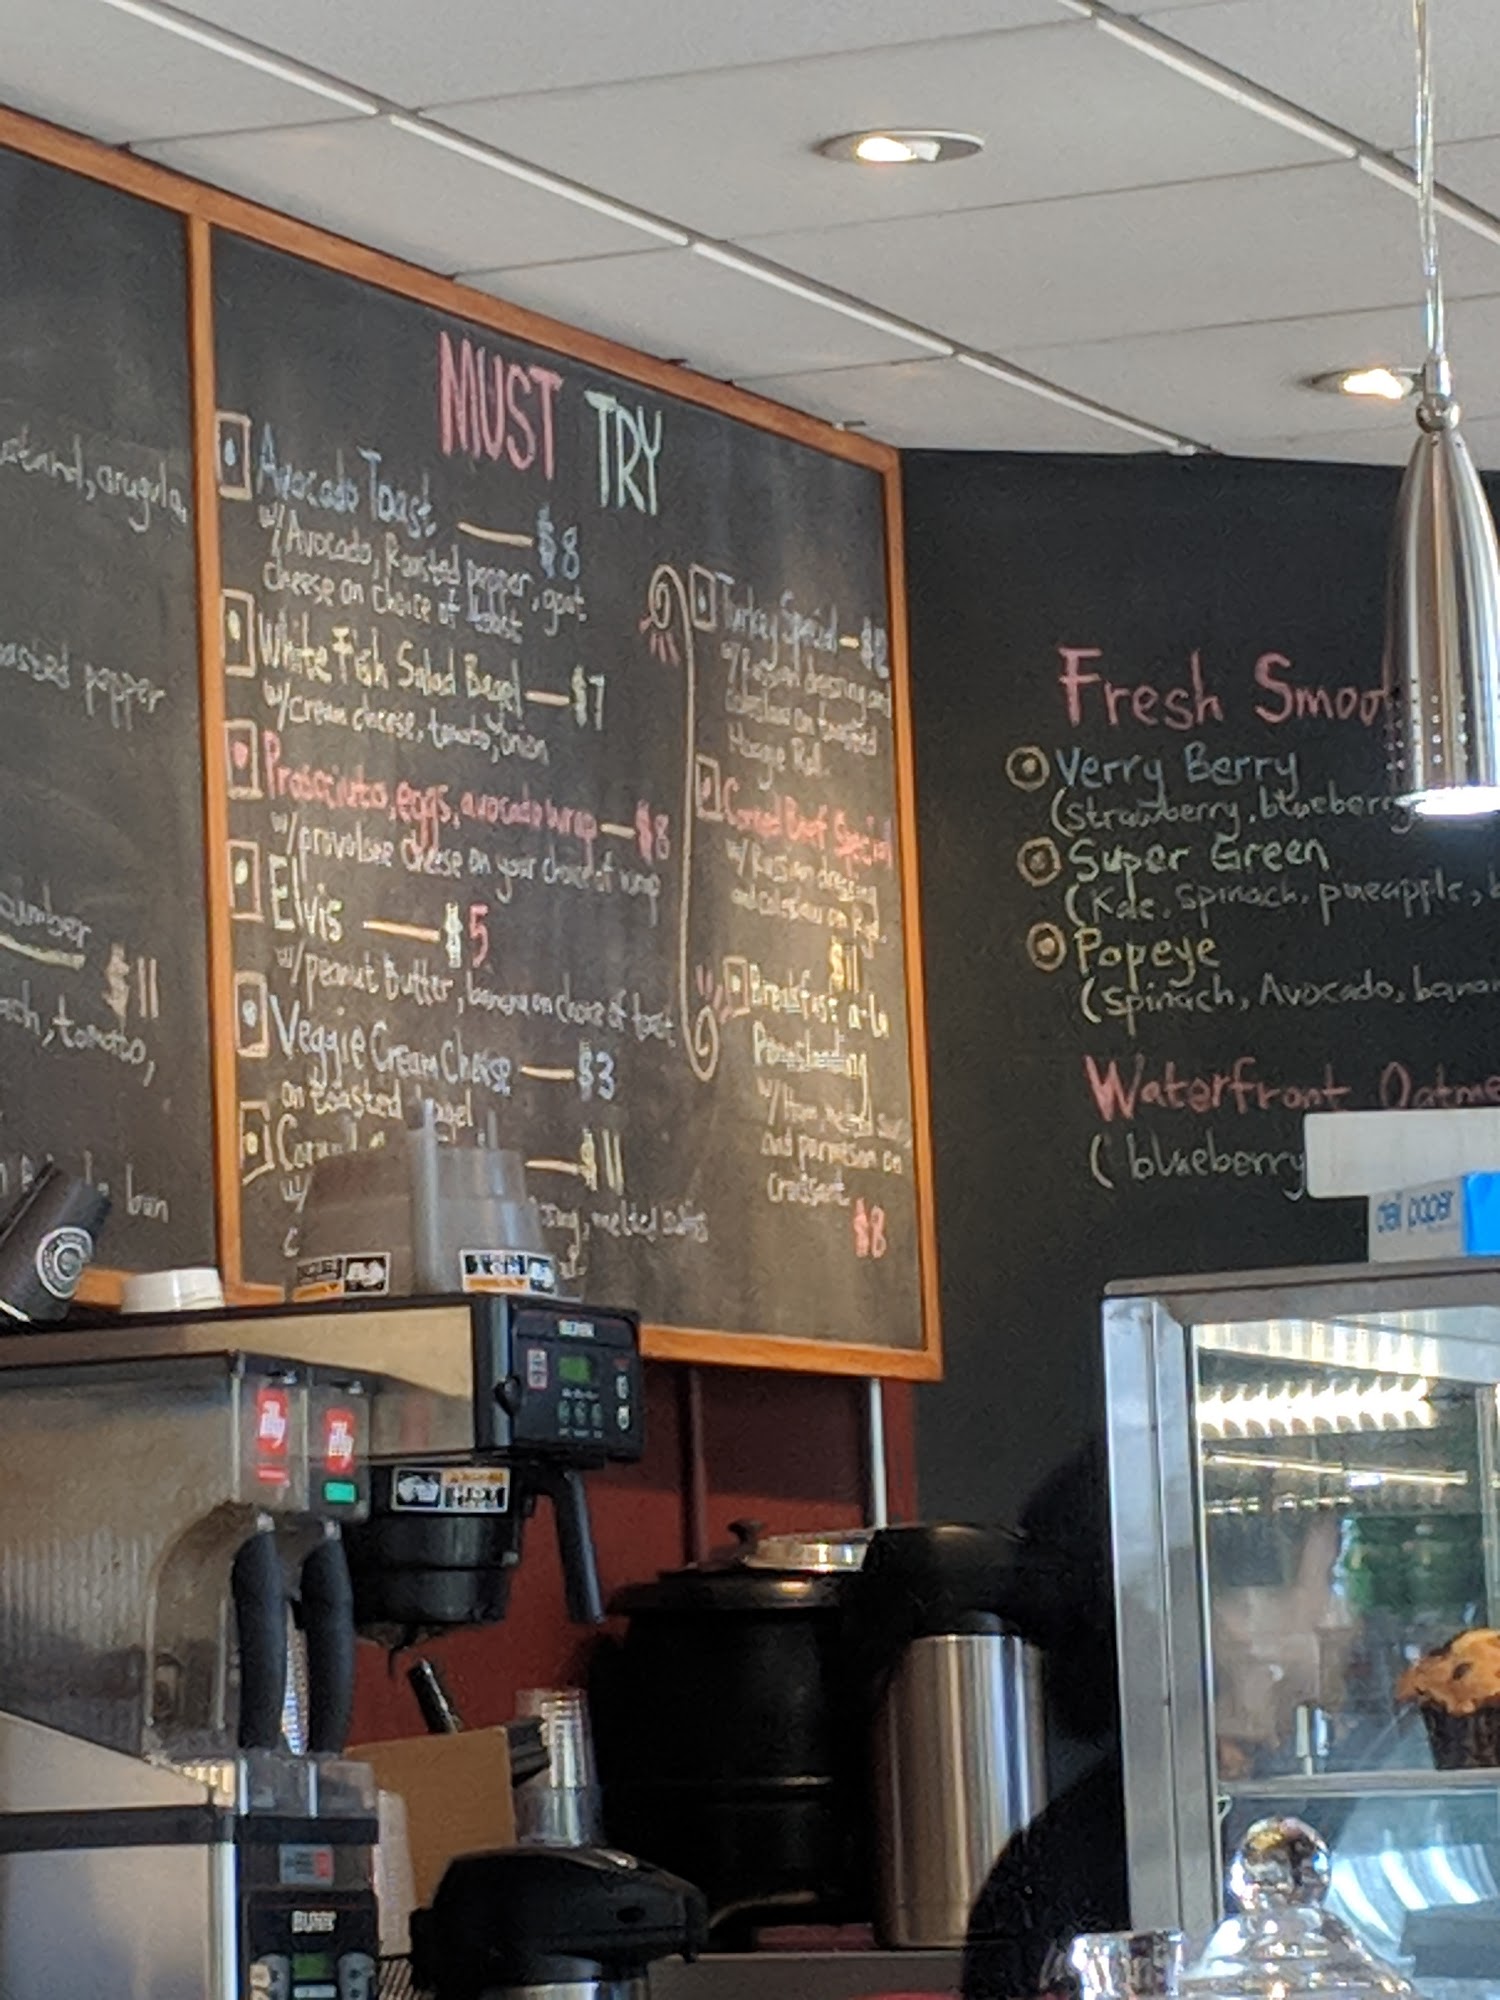 arugula,
pepper
$11
tomato,
bun
MUST TRY
Avocado Toast — $8
w/Avocado, Roasted pepper, goat
cheese on choice of
White Fish Salad Bagel — $7
w/cream cheese, tomato, onion
Prosciuto, eggs, avocado wrap — $8
w/provolone cheese on your choice of wrap
Elvis — $5
w/peanut Butter, banana on choice of toast
Veggie Cream Cheese — $3
on toasted bagel
— $11
melted swiss
Turkey Special —
w/Russian dressing and
coleslaw on toasted
Hoagie Roll.
Corned Beef Special
w/Russian dressing
and coleslaw on
$11
Breakfast a-la
w/Ham, melted
and parmesan on
croissant
$8
Fresh
Verry Berry
(strawberry, blueberry
Super Green
(Kale, Spinach, pineapple,
Popeye
(Spinach, Avocado,
Waterfront
(blueberry
deli paper
illy
illy
BUNN